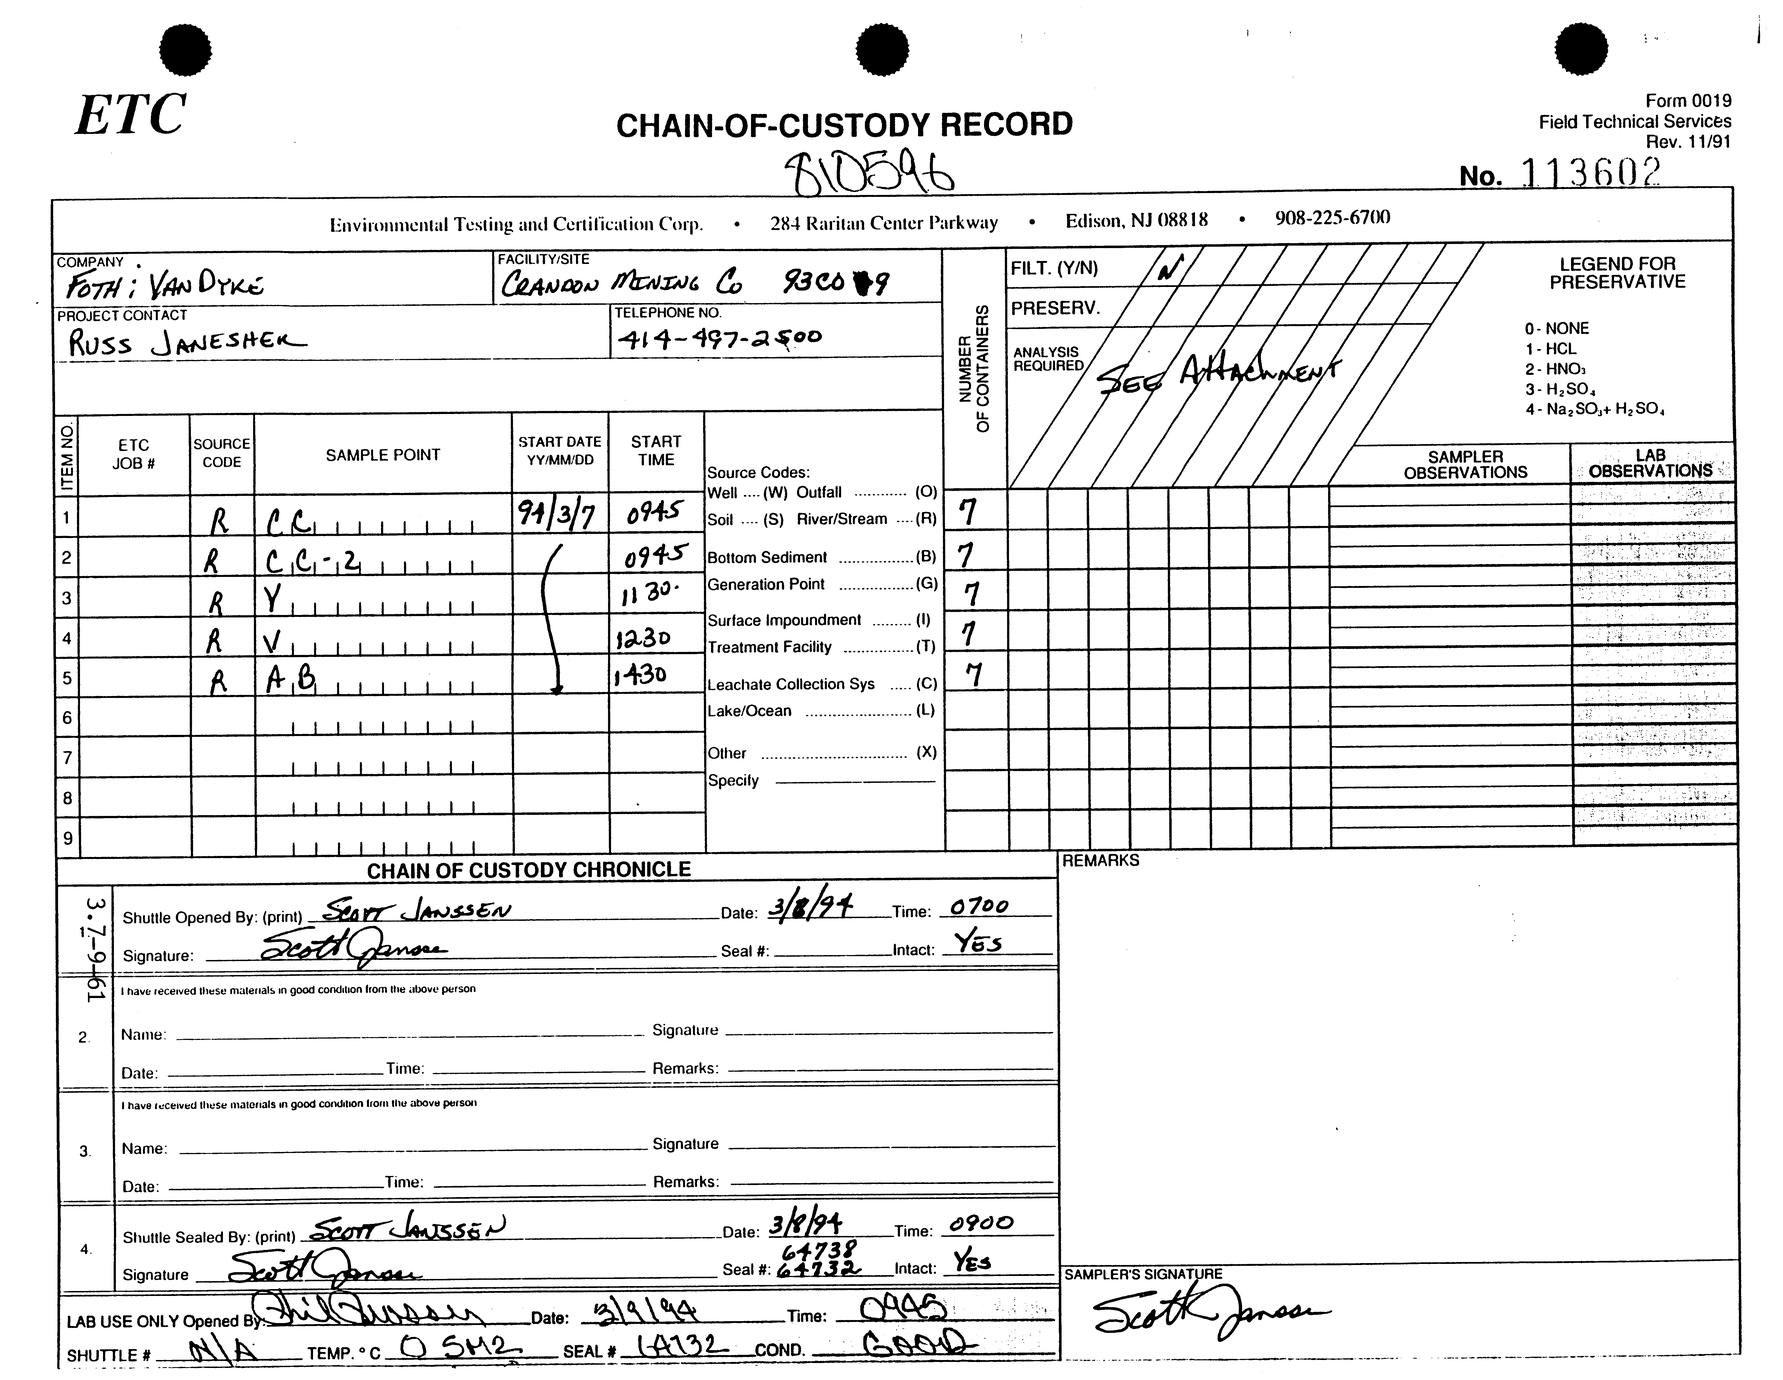 ETC
CHAIN-OF-CUSTODY RECORD
Form 0019
Field Technical Services
Rev. 11/91
810596
No. 113602
Environmental Testing and Certification Corp. • 284 Raritan Center Parkway • Edison, NJ 08818 • 908-225-6700
COMPANY
FOTH & VAN DYKE
FACILITY/SITE
CRANDON MINING CO 93C0 9
PROJECT CONTACT
RUSS JANESHEK
TELEPHONE NO.
414-497-2500
NUMBER OF CONTAINERS
FILT. (Y/N) N
PRESERV.
ANALYSIS REQUIRED
SEE ATTACHMENT
LEGEND FOR
PRESERVATIVE
0 - NONE
1 - HCL
2 - HNO₃
3 - H₂SO₄
4 - Na₂SO₃+ H₂SO₄
ITEM NO. ETC JOB # SOURCE CODE SAMPLE POINT START DATE YY/MM/DD START TIME SAMPLER OBSERVATIONS LAB OBSERVATIONS
1 R CC 94/3/7 0945 7
2 R CC-2 0945 7
3 R Y 1130 7
4 R V 1230 7
5 R AB 1430 7
6
7
8
9
Source Codes:
Well .... (W) Outfall ........... (O)
Soil .... (S) River/Stream .... (R)
Bottom Sediment ................ (B)
Generation Point ................ (G)
Surface Impoundment ......... (I)
Treatment Facility .............. (T)
Leachate Collection Sys ..... (C)
Lake/Ocean ....................... (L)
Other ................................ (X)
Specify
CHAIN OF CUSTODY CHRONICLE
REMARKS
3.7-9-61
1.
Shuttle Opened By: (print) SCOTT JANSSEN Date: 3/8/94 Time: 0700
Signature: Scott Janssen Seal #: Intact: YES
I have received these materials in good condition from the above person
2.
Name: Signature
Date: Time: Remarks:
I have received these materials in good condition from the above person
3.
Name: Signature
Date: Time: Remarks:
4.
Shuttle Sealed By: (print) SCOTT JANSSEN Date: 3/8/94 Time: 0900
64738
Signature Scott Janssen Seal #: 64732 Intact: YES
SAMPLER'S SIGNATURE
Scott Janssen
LAB USE ONLY Opened By: Phil Date: 3/9/94 Time: 0945
SHUTTLE # N/A TEMP. °C SEAL # COND. GOOD